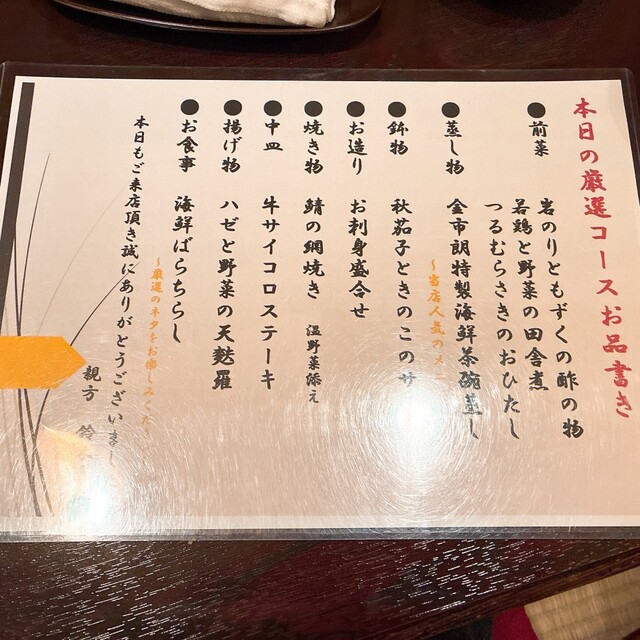 本日の厳選コースお品書き
●前菜 岩のりともずくの酢の物
若鶏と野菜の田舎煮
つるむらさきのおひたし
●蒸し物 金市朗特製海鮮茶碗蒸し
～当店人気のメ
●鉢物 秋茄子ときのこのサ
●お造り お刺身盛合せ
●焼き物 鯖の網焼き 温野菜添え
●中皿 牛サイコロステーキ
●揚げ物 ハゼと野菜の天麩羅
●お食事 海鮮ばらちらし
～厳選のネタをお楽しみくだ
本日もご来店頂き誠にありがとうございまし
親方